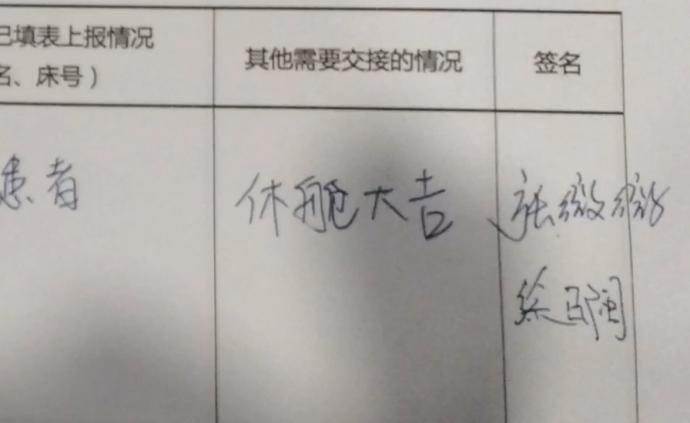 已填表上报情况
名、床号）
其他需要交接的情况
签名
患者
休舱大吉
张微微